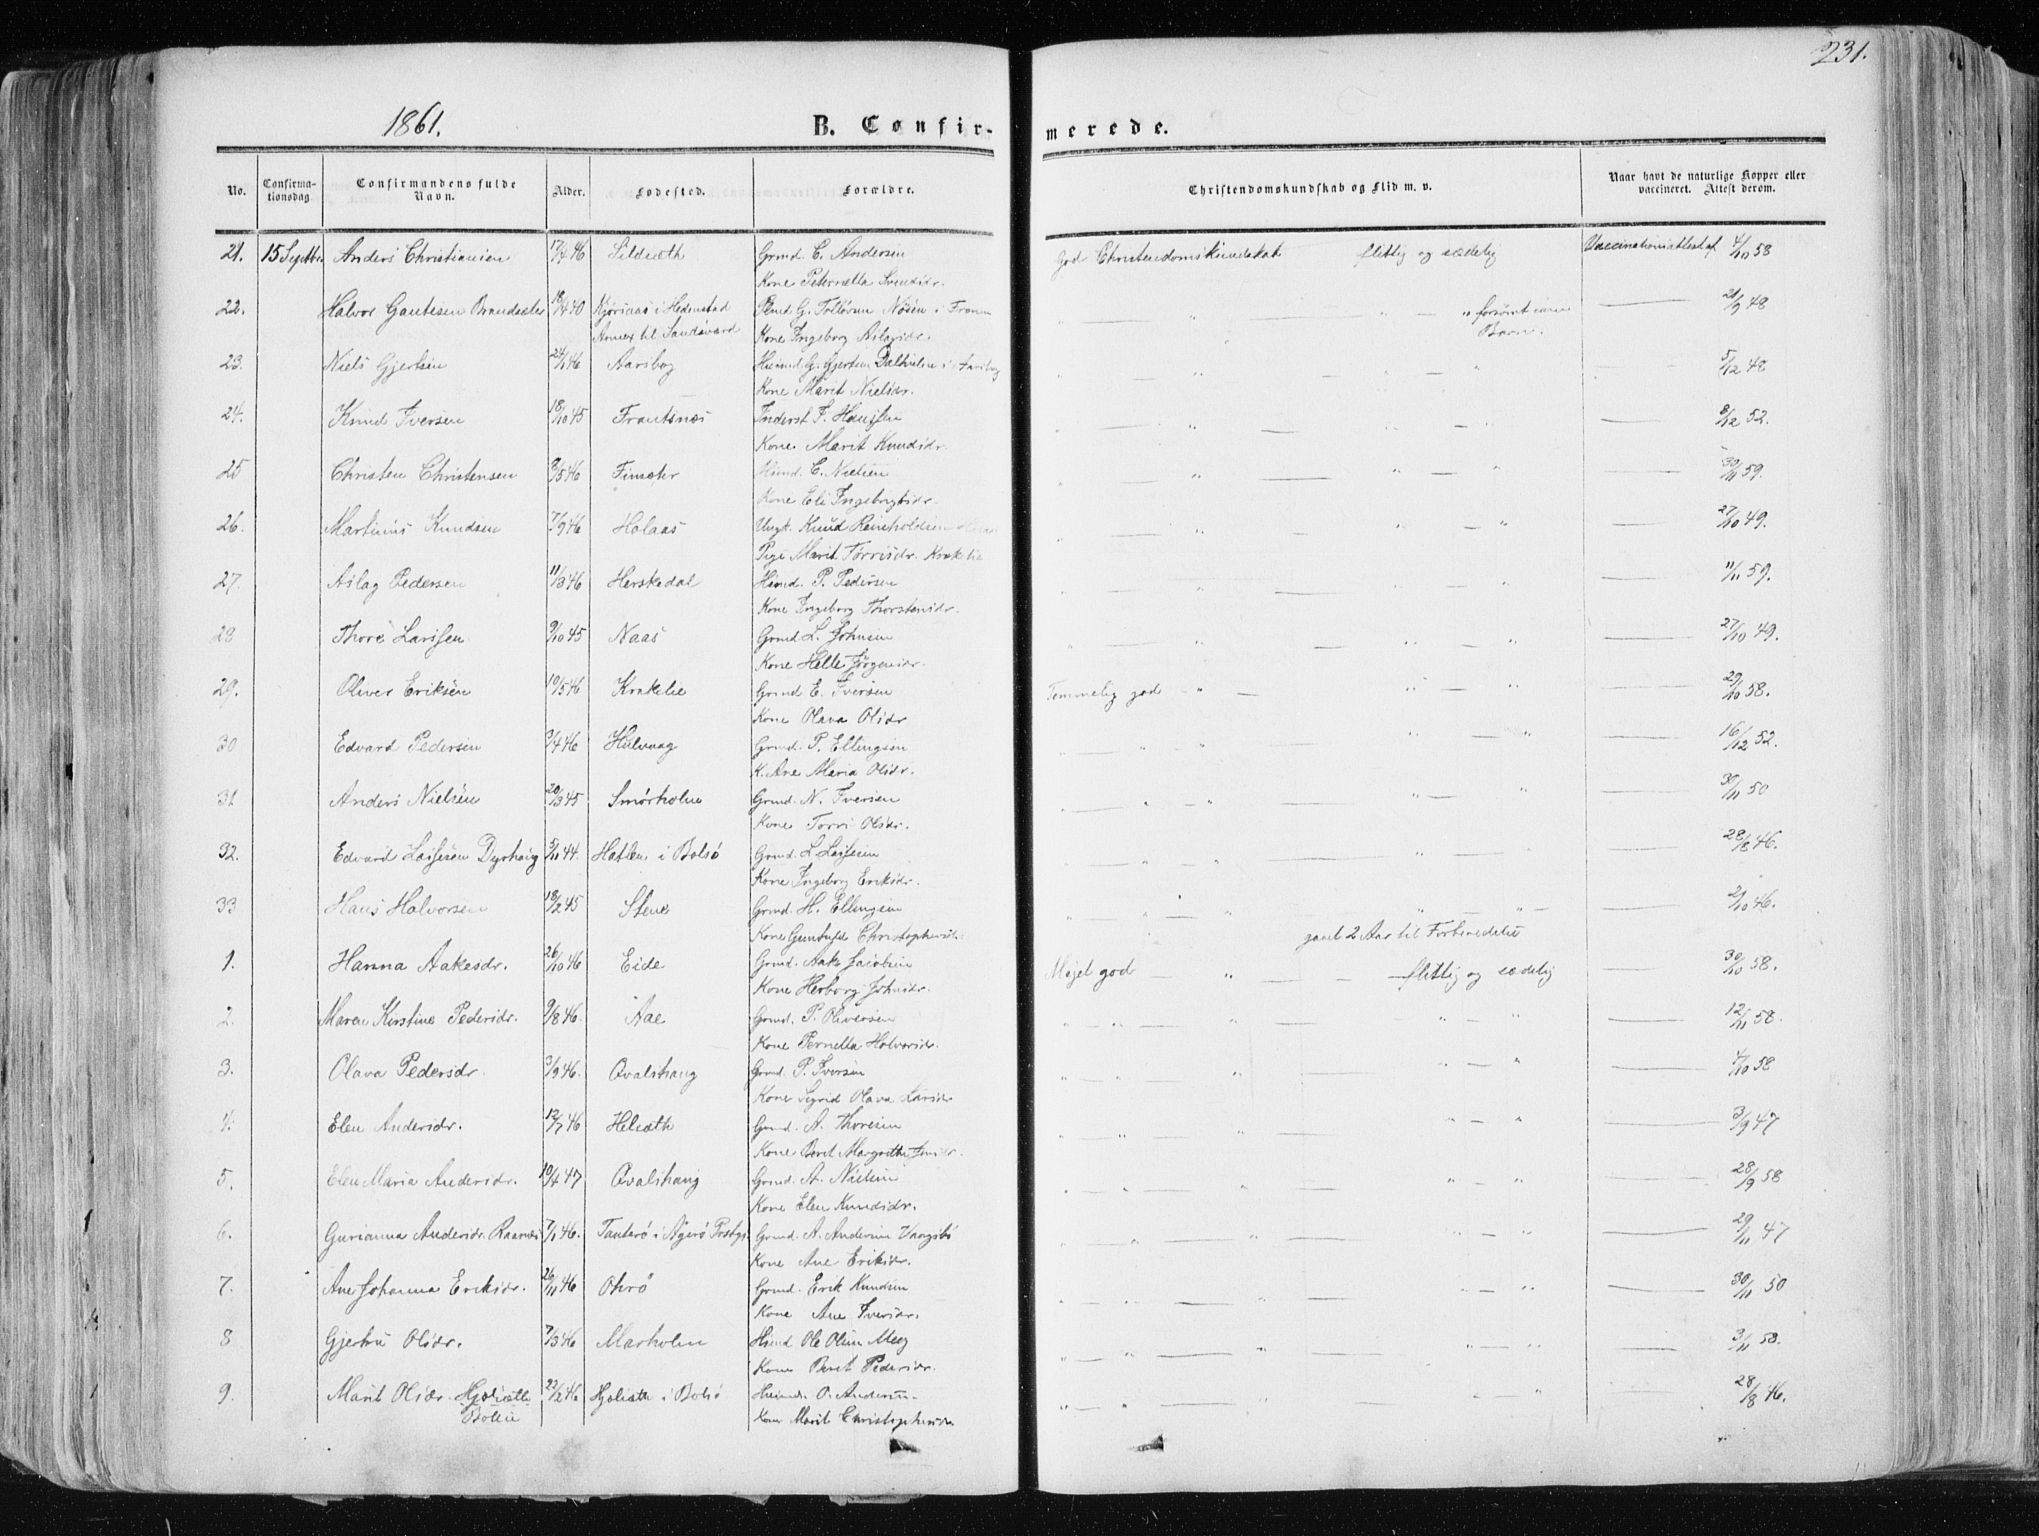 231.
1861. B. Confirmerede.
No. Confirmationsdag Confirmandens fulde Navn. Alder. Fødested. Forældre. Christendomskundskab og Flid m. v. Naar havt de naturlige Kopper eller vaccineret. Attest derom.
21. 15 Septbr. Anders Christiansen 17/4 46 Sildnæth Grmd. C. Andersen god Christendomskundskab flittig og sædelig Vaccinationsattest af 4/10 58
Kone Peternella Svendsdr.
22. Halvor Gautesen 18/4 40 i Hedenstad G. i " " — " 21/9 48
Annex til Sandsværd Kone Ingeborg Aslagsdr. Barn.
23. Niels Gjertsen 24/1 46 Aarsbog Huusmd. G. Gjertsen i Aarsbog " " — " 5/12 48
Kone Marit Nielsdr.
24. Knud Iversen 18/10 45 Frantsnæs Inderst I. Hanssen " " — " — " 8/12 52.
Kone Marit Knudsdr.
25 Christen Christensen 8/5 46 Finsæter Hsmd. C. Nielsen " " — " — " 30/11 59.
Kone Eli Ingebrigtsdr.
26. Martinus Knudsen 7/9 46 Holaas Ungk. Knud Reinholdsen " " — " — " 27/10 49.
Pige Marit Torrisdr. Krakelie
27. Aslag Pedersen 11/3 46 Herskedal Hsmd. P. Pedersen " " — " — " 11/11 59.
Kone Ingeborg Thorstensdr.
28 Thore Larssen 9/10 45 Naas Grmd. L. Johnsen " " — " " 27/10 49.
Kone Helle Jørgensdr.
29. Oliver Eriksen 10/5 46 Krakelie Grmd E. Iversen Temmelig god — " — " — " 29/10 58.
Kone Olava Olsdr
30 Edvard Pedersen 3/4 46 Hulvaag Grmd. P. Ellingsen " " " — " — " 16/12 52.
K. Ane Maria Olsdr.
31 Anders Nielsen 20/3 45 Smørholm Grmd. N. Iversen " " — " — " — " 30/11 50
Kone Torri Olsdr.
32. Edvard Lassesen Dyrhaug 5/11 44. Hatlen i Bolsø Grmd. L. Lassesen " " " — " — " 28/8 46.
Kone Ingeborg Eriksdr.
33 Hans Halvorsen 18/2 45 Stene Grmd. H. Ellingsen " " — " — " — " — 21/10 46.
Kone Gunhild gaaet 2 Aar til Forberedelse
1. Hanna Aakesdr. 26/10 46 Eide Grmd. Aake Jacobsen Meget god — " — — flittig og sædelig 30/10 58.
Kone Herborg Johnsdr.
2. Maren Kirstine Pedersdr. 9/8 46. Aae Grmd. P. Oliversen " — " — " — " — " 12/11 58.
Kone Pernella Halvorsdr.
3. Olava Pedersdr. 3/9 46. Qvalshaug Grmd. P. Iversen " — " " — " — " 4/10 58
Kone Sigrid Olava Larsdr
4. Elen Andersdr. 12/7 46 Helsæth Grmd. A. Thoresen " — " — " — " — " 3/9 47
Kone Beret Margrethe Jensdr.
5. Elen Maria Andersdr. 10/4 47 Qvalshaug Grmd. A. Nielsen " — " — " — " — " 28/9 58
Kone Elen Knudsdr.
6. Gurianna Andersdr. Raanæs 7/1 46. i Agerø Præstgj. Grmd. A. Andersen Vaagsbø " — " — " — " — " 29/11 47
Kone Ane Eriksdr.
7. Ane Johanna Eriksdr. 26/11 46 Otrø Grmd. Erik Knudsen " — " — " — " — " 30/11 50
Kone Ane Iversdr.
8 Gjertru Olsdr. 7/3 46 Marholm Hsmd Ole Olsen Meeg " — " — " — " — " 3/11 58.
Kone Beret Pedersdr.
9. Marit Olsdr. Hjelsæth 22/2 46 Hjelsæth i Bolsø Huusmd. O. Andersen " — " — " — — " 28/8 46.
Bolsø Kone Marit Christophersdr